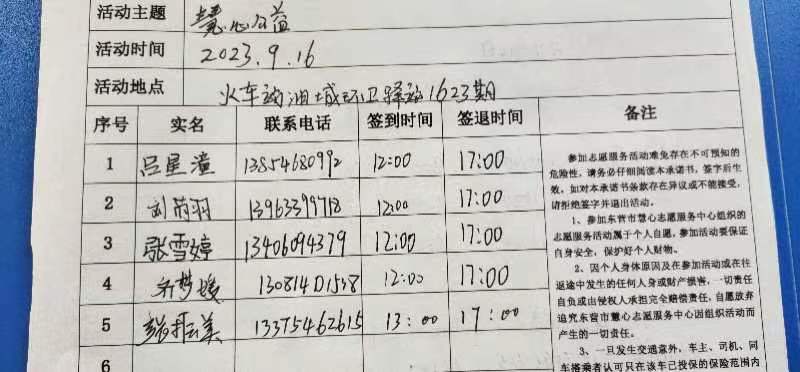 活动主题 慧心公益
活动时间 2023.9.16
活动地点 火车站油城环卫驿站1623期
序号 实名 联系电话 签到时间 签退时间 备注
1 吕星潼 13854680992 12:00 17:00
2 刘荫羽 13963399718 12:00 17:00
3 张雪婷 13406094379 12:00 17:00
4 齐梦媛 13081401538 12:00 17:00
5 振美 13375462615 13:00 17:00
6
参加志愿服务活动难免存在不可预知的
危险性，请务必仔细阅读本承诺书，签字后生
效，如对本承诺书条款存在异议或不能接受，
请拒绝签字并退出活动。
1、参加东营市慧心志愿服务中心组织的
志愿服务活动属于个人自愿，参加活动要保证
自身安全，保护好个人财物。
2、因个人身体原因及在参加活动或在往
返途中发生的任何人身或财产损害，一切责任
自负或由侵权人承担完全赔偿责任，自愿放弃
追究东营市慧心志愿服务中心因组织活动而
产生的一切责任。
3、一旦发生交通意外，车主、司机、同
车搭乘者认可只在该车已投保的保险范围内